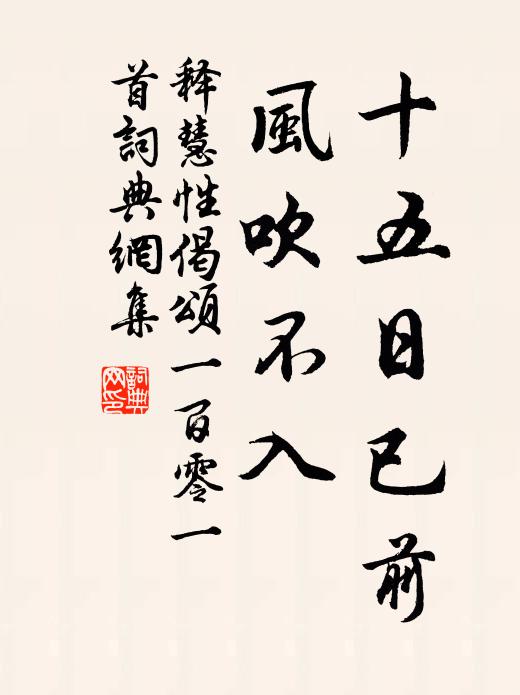 十五日已前
風吹不入
释慧性偈頌一百零一
首詞典網集
詞典網印